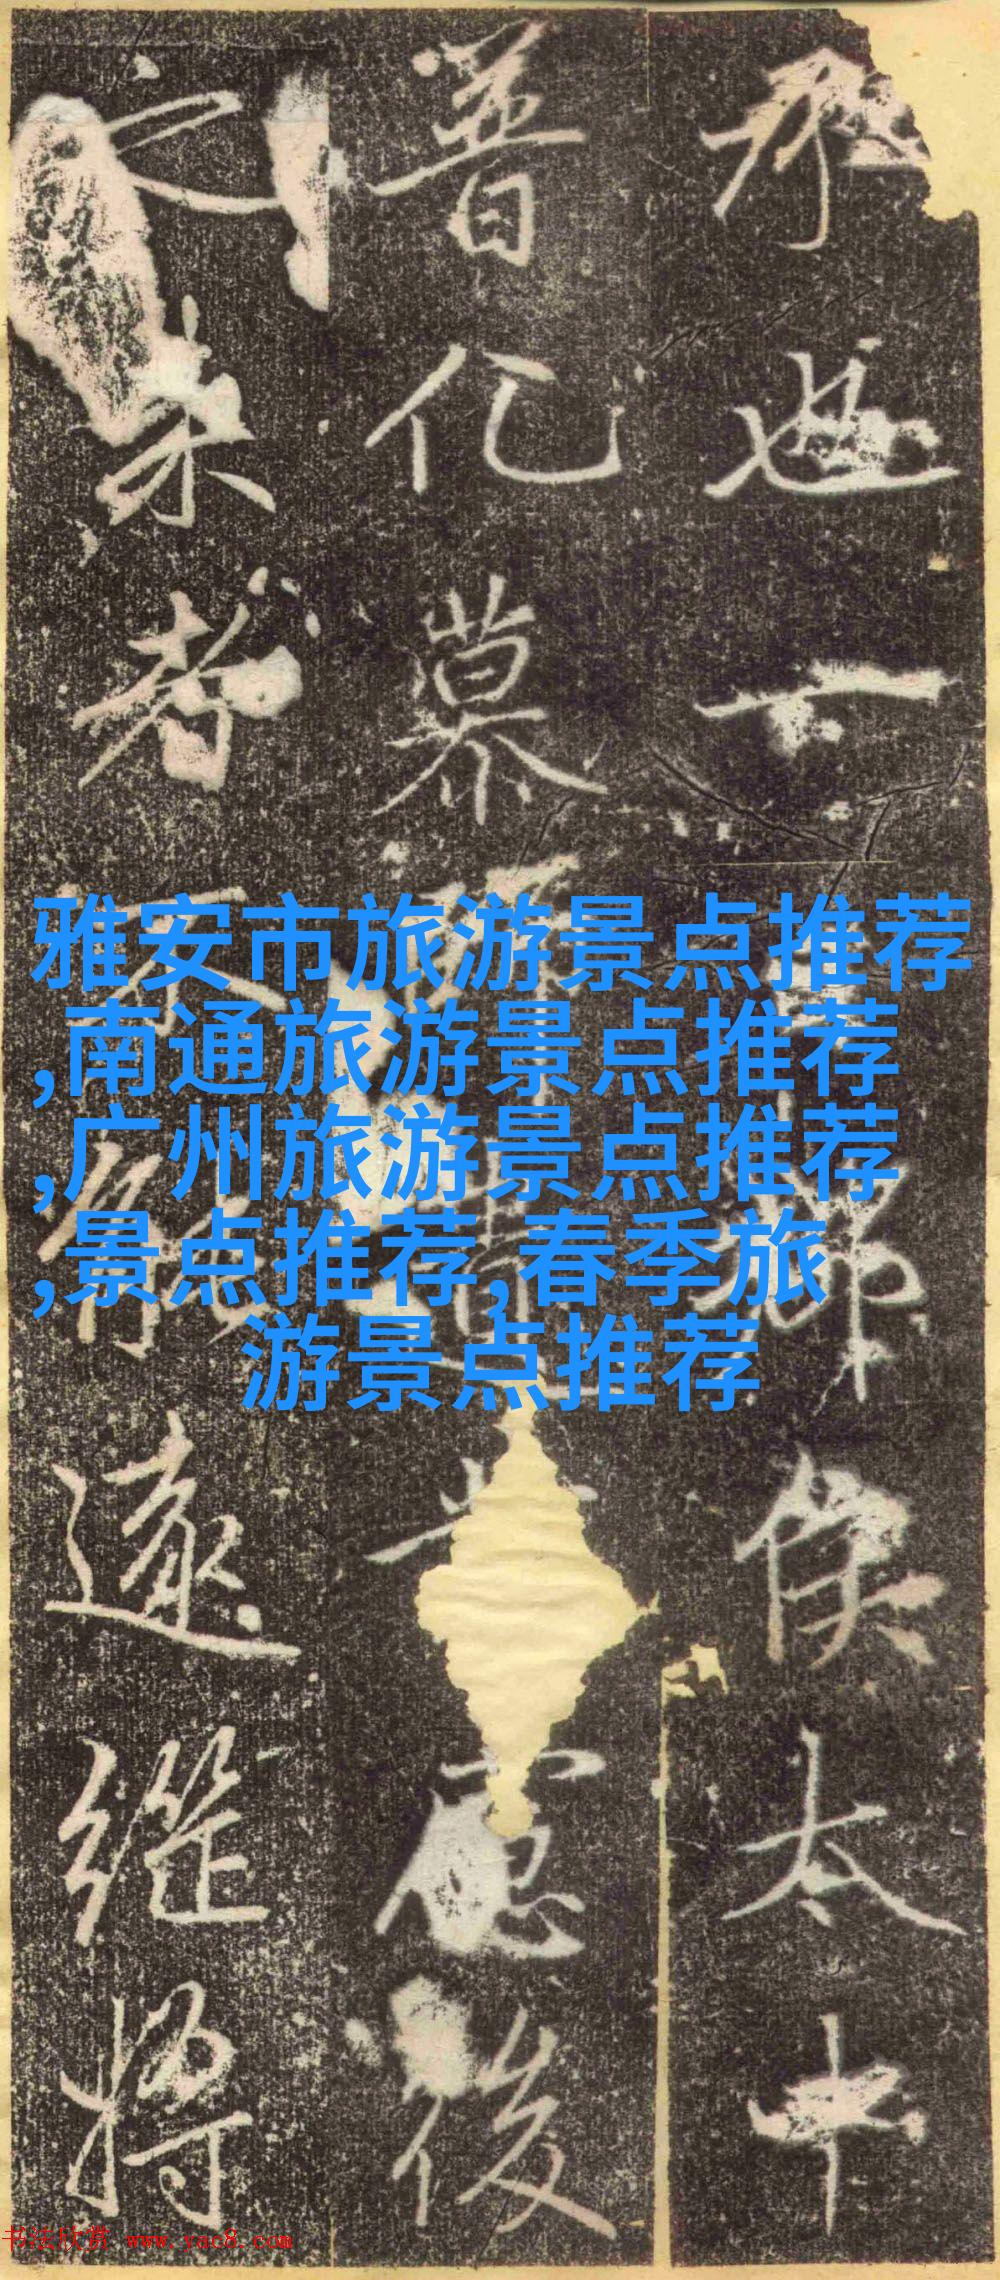 雅安市旅游景点推荐
,南通旅游景点推荐
,广州旅游景点推荐
,景点推荐,春季旅
游景点推荐
也一
侯太中
普化慕
後
之
未者不能
遠繼將
书法欣赏 www.yac8.com